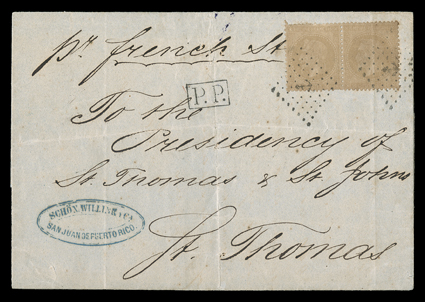 pr french St
P.P.
To the
Presidency of
St. Thomas & St. Johns
SCHÖN, WILLINK & Cª
SAN JUAN DE PUERTO RICO.
St. Thomas